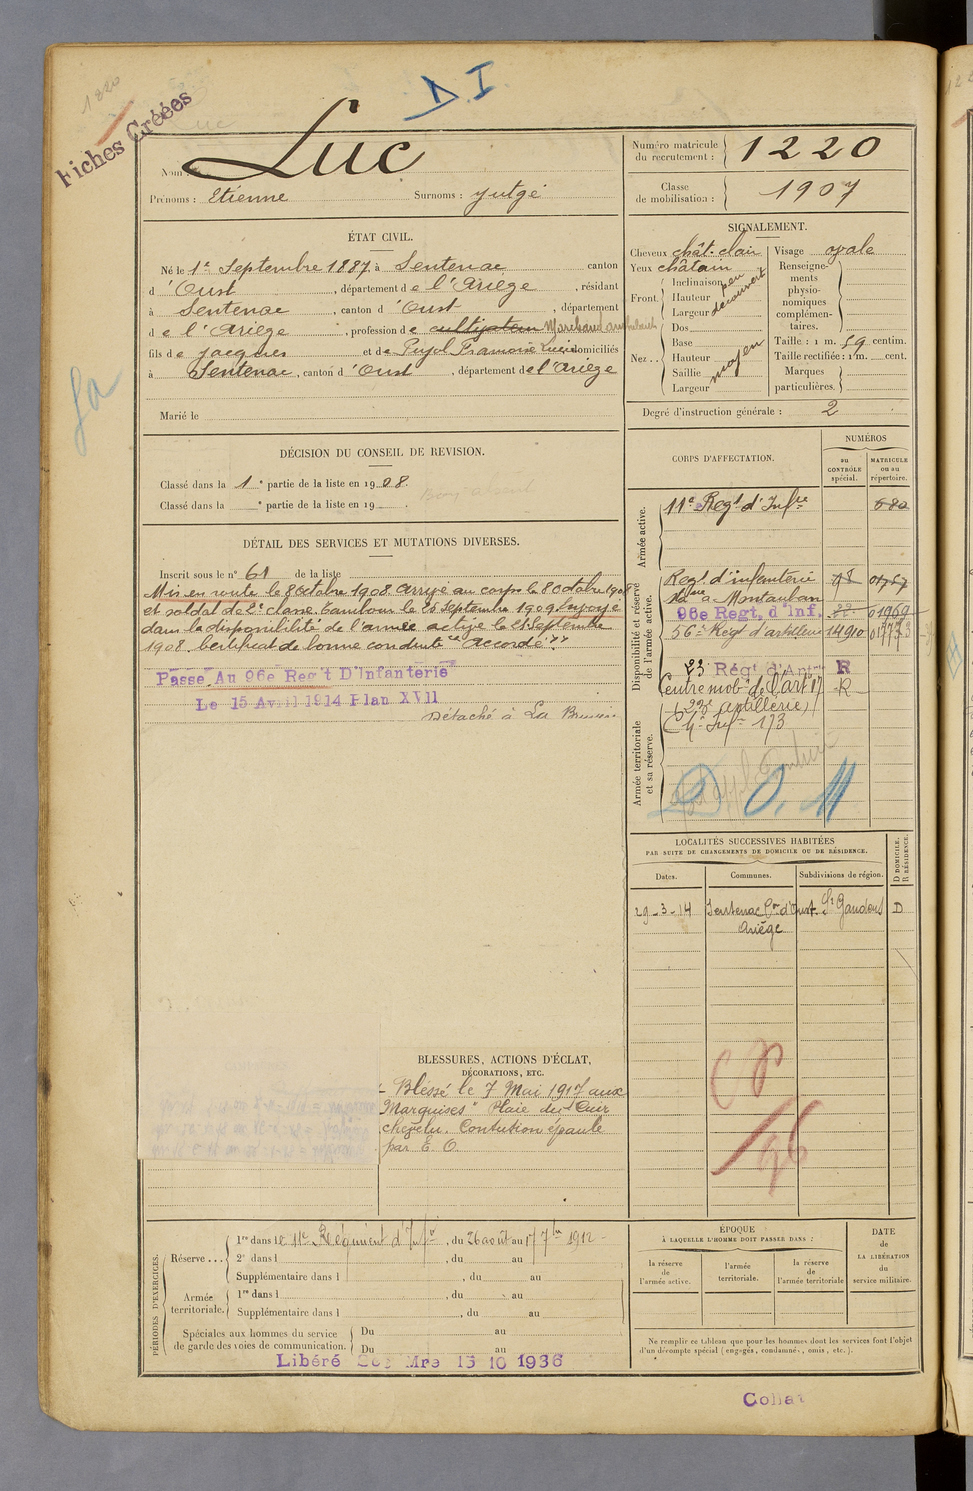 1220
D. I.
Fiches Créées
Nom : Luc
Prénoms : Etienne Surnoms : Jutgé
Numéro matricule du recrutement : 1220
Classe de mobilisation : 1907
ÉTAT CIVIL.
Né le 1er Septembre 1887 à Sentenac canton
d'Oust, département de l'Ariège, résidant
à Sentenac, canton d'Oust, département
de l'Ariège, profession de cultivateur Marchand ambulant
fils de Jacques et de Pujol Françoise Lucie domiciliés
à Sentenac, canton d'Oust, département de l'Ariège
Marié le
SIGNALEMENT.
Cheveux chât. clair
Yeux châtain
Front. Inclinaison
Hauteur peu
Largeur découvert
Nez .. Dos
Base
Hauteur moyen
Saillie
Largeur
Visage ovale
Renseignements physionomiques complémentaires.
Taille : 1 m. 59 centim.
Taille rectifiée : 1 m. cent.
Marques particulières.
Degré d'instruction générale : 2
DÉCISION DU CONSEIL DE REVISION.
Classé dans la 1e partie de la liste en 1908.
Classé dans la e partie de la liste en 19 .
Bon absent
DÉTAIL DES SERVICES ET MUTATIONS DIVERSES.
Inscrit sous le n° 61 de la liste
Mis en route le 8 octobre 1908. Arrivé au corps le 8 octobre 1908
et soldat de 2e classe. Tambour le 26 Septembre 1909. Envoyé
dans la disponibilité de l'armée active le Septembre
Certificat de bonne conduite "Accordé".
Passe Au 96e Reg't D'Infanterie
Le 15 Avril 1914 Plan XVII
Détaché à La
CORPS D'AFFECTATION.
NUMÉROS
au CONTRÔLE spécial.
MATRICULE ou au répertoire.
Armée active.
11e Regt d'Infrie
Disponibilité et réserve de l'armée active.
Regt d'infanterie
à Montauban
96e Regt, d'Inf. 01969
56e Régt d'artillerie 14910
23 Rég't d'Art R
Centre mobre de l'art 17 R
(23e artillerie)
Armée territoriale et sa réserve.
D. O. M
LOCALITÉS SUCCESSIVES HABITÉES
PAR SUITE DE CHANGEMENTS DE DOMICILE OU DE RÉSIDENCE.
Dates. Communes. Subdivisions de région. D DOMICILE. R RÉSIDENCE.
29-3-14 Sentenac Con d'Oust. St Gaudens D
Ariège
BLESSURES, ACTIONS D'ÉCLAT,
DÉCORATIONS, ETC.
- Blessé le 7 Mai 1917 aux
Marquises" Plaie du Cuir
chevelu. Contution épaule
par E. O.
PÉRIODES D'EXERCICES.
Réserve ... 1re dans le 11e Régiment d'Infie, du 26 août au 17 7bre 1912 -
2e dans l , du au
Supplémentaire dans l , du au
Armée territoriale. 1re dans l , du au
Supplémentaire dans l , du au
Spéciales aux hommes du service de garde des voies de communication. Du au
Du au
Libéré Mre 15 10 1936
ÉPOQUE
À LAQUELLE L'HOMME DOIT PASSER DANS :
la réserve de l'armée active.
l'armée territoriale.
la réserve de l'armée territoriale
DATE de LA LIBÉRATION du service militaire.
Ne remplir ce tableau que pour les hommes dont les services font l'objet
d'un décompte spécial (engagés, condamnés, omis, etc.).